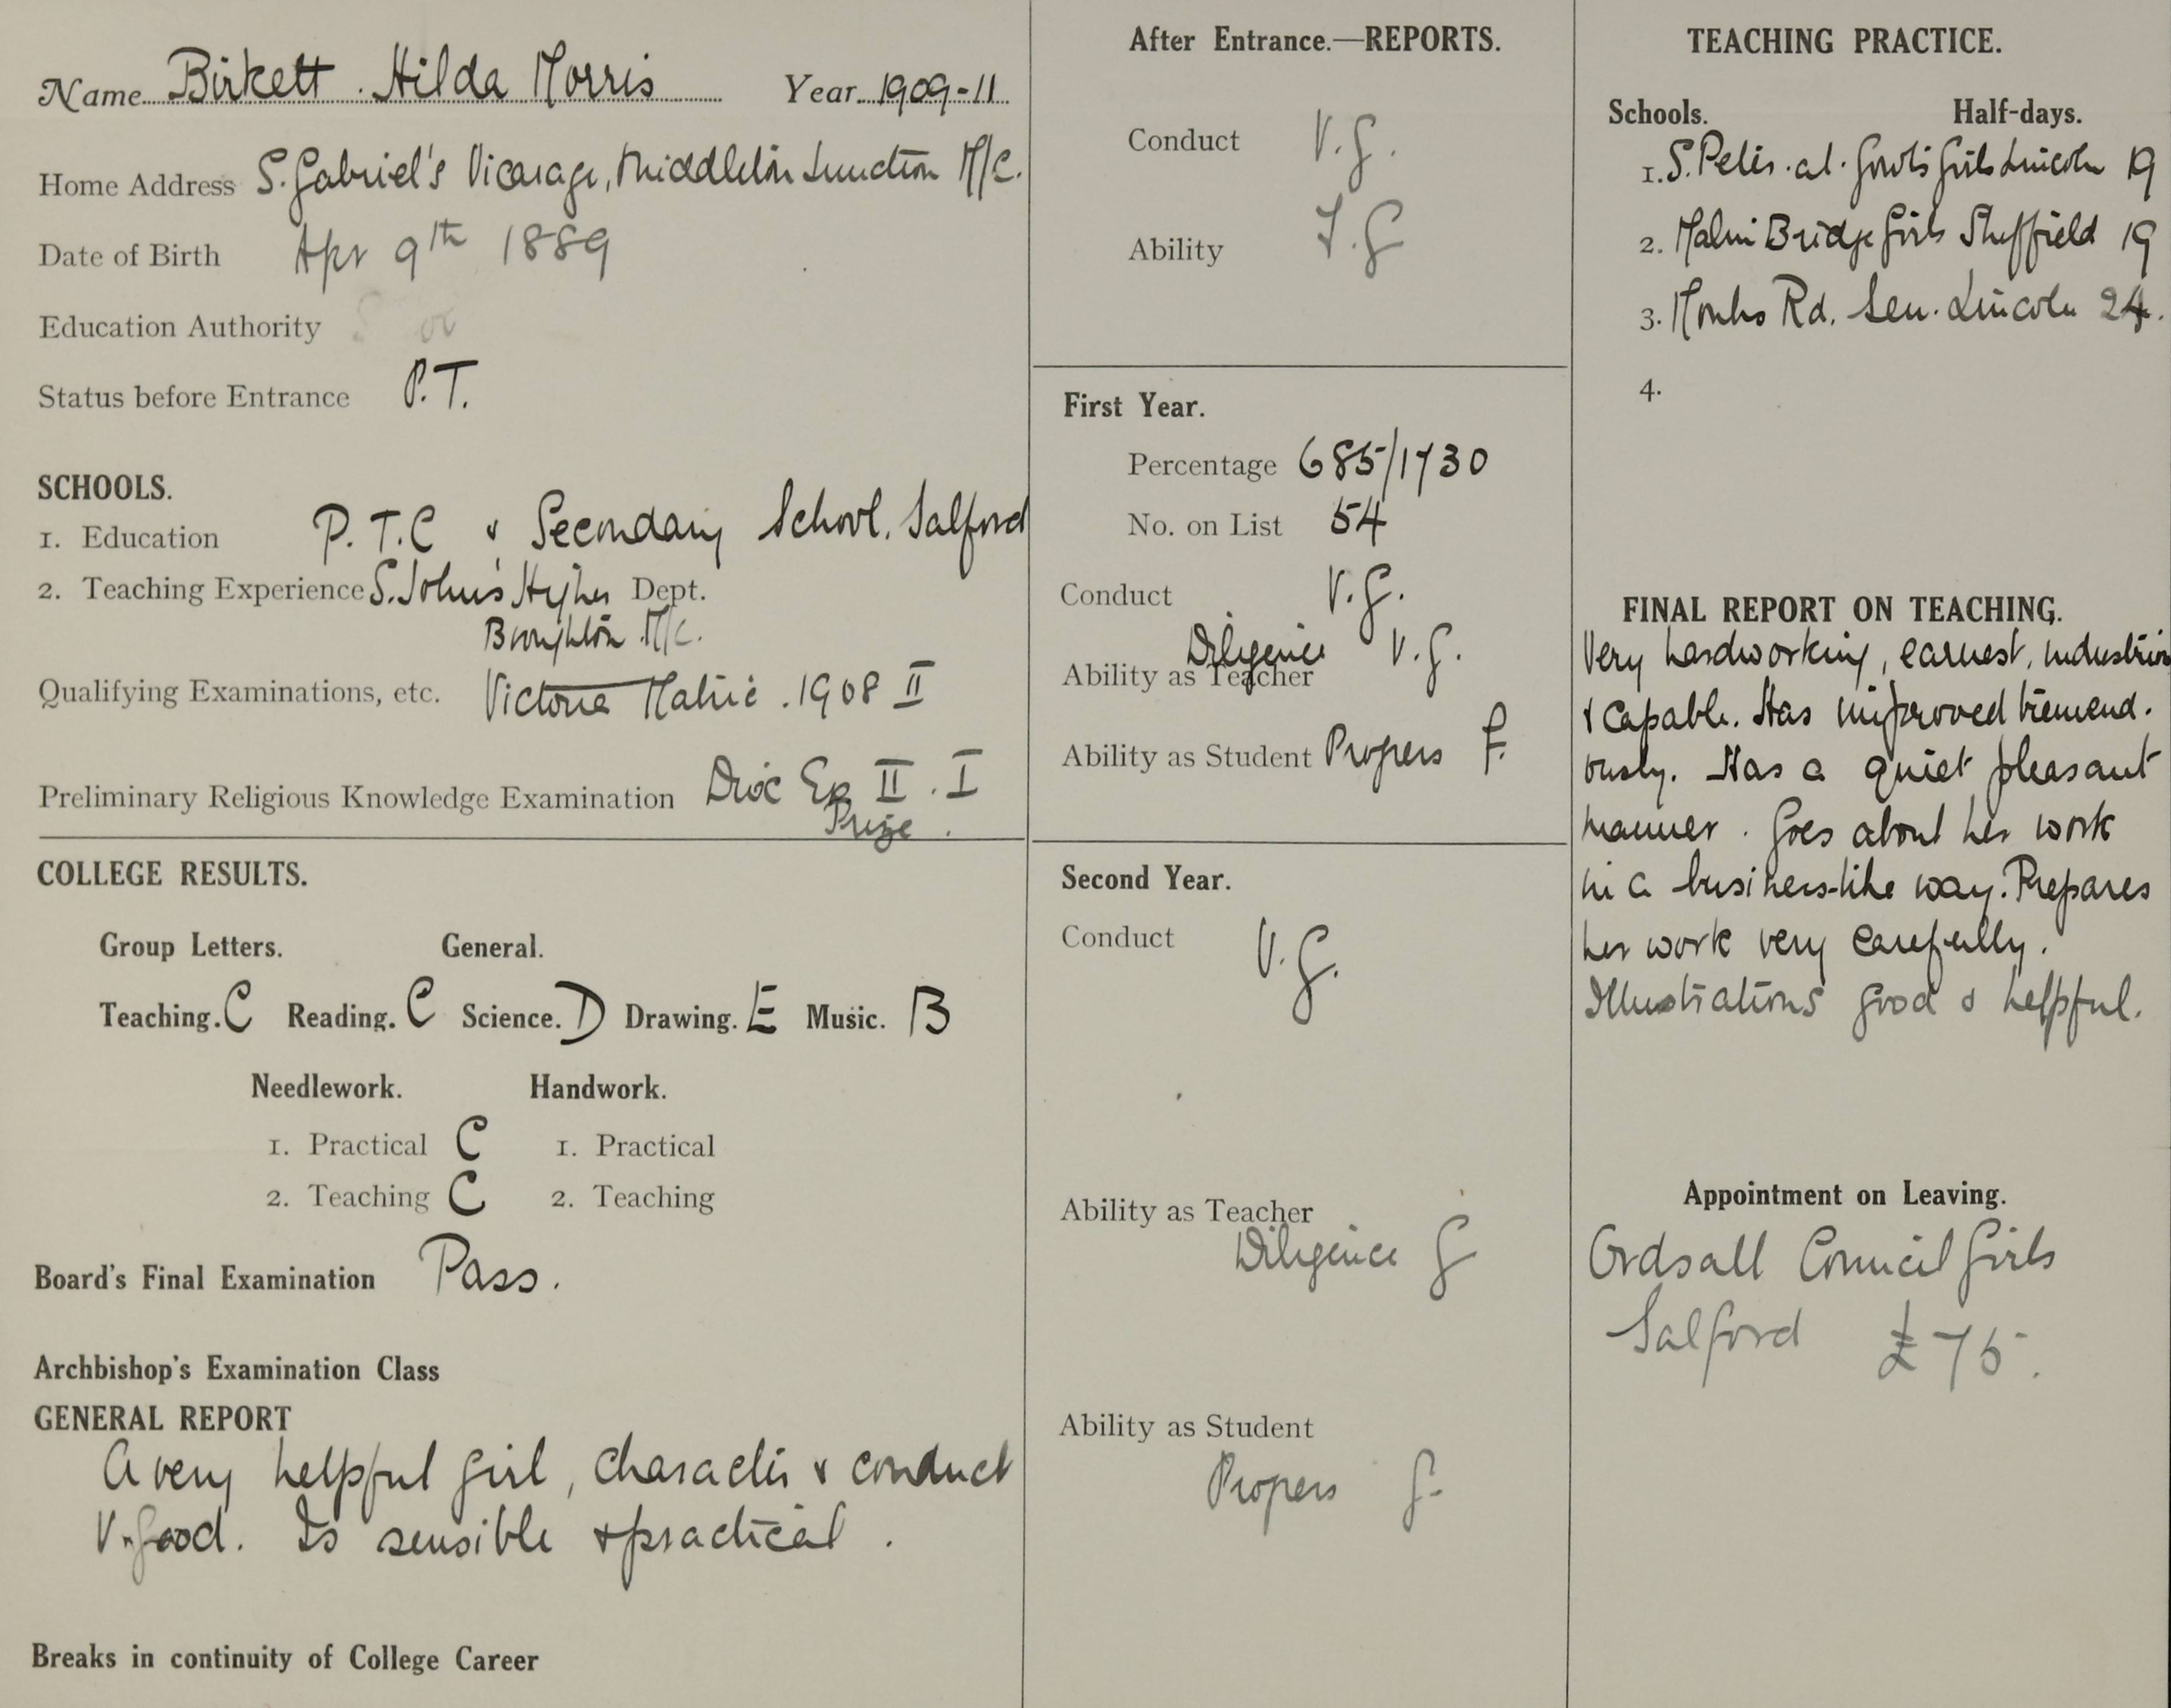 Name Birkett . Hilda Morris Year 1909-11
Home Address S. Gabriel's Vicarage, Middleton Junction M/C.
Date of Birth Apr 9th 1889
Education Authority
Status before Entrance P.T.
SCHOOLS.
1. Education P.T.C & Secondary School, Salford
2. Teaching Experience S. John's Higher Dept.
Broughton M/C.
Qualifying Examinations, etc. Victoria Matric . 1908 II
Preliminary Religious Knowledge Examination Dioc Ex II . I
Prize .
COLLEGE RESULTS.
Group Letters. General.
Teaching. C Reading. C Science. D Drawing. E Music. B
Needlework. Handwork.
1. Practical C 1. Practical
2. Teaching C 2. Teaching
Board's Final Examination Pass.
Archbishop's Examination Class
GENERAL REPORT
A very helpful girl, character & conduct
V. good. Is sensible & practical .
Breaks in continuity of College Career
After Entrance.—REPORTS.
Conduct V.G.
Ability F.G
First Year.
Percentage 685/1730
No. on List 54
Conduct V.G.
Diligence V.G.
Ability as Teacher
Ability as Student Progress F.
Second Year.
Conduct V.G.
Ability as Teacher
Diligence G
Ability as Student
Progress G.
TEACHING PRACTICE.
Schools. Half-days.
1. S. Peter. at. Gowts Girls Lincoln 19
2. Malin Bridge Girls Sheffield 19
3. Monks Rd. Sen. Lincoln 24.
4.
FINAL REPORT ON TEACHING.
Very hardworking, earnest, industrious
& capable. Has improved tremend.
ously. Has a quiet pleasant
manner . Goes about her work
in a business-like way. Prepares
her work very carefully.
Illustrations good & helpful.
Appointment on Leaving.
Ordsall Council Girls
Salford £75.